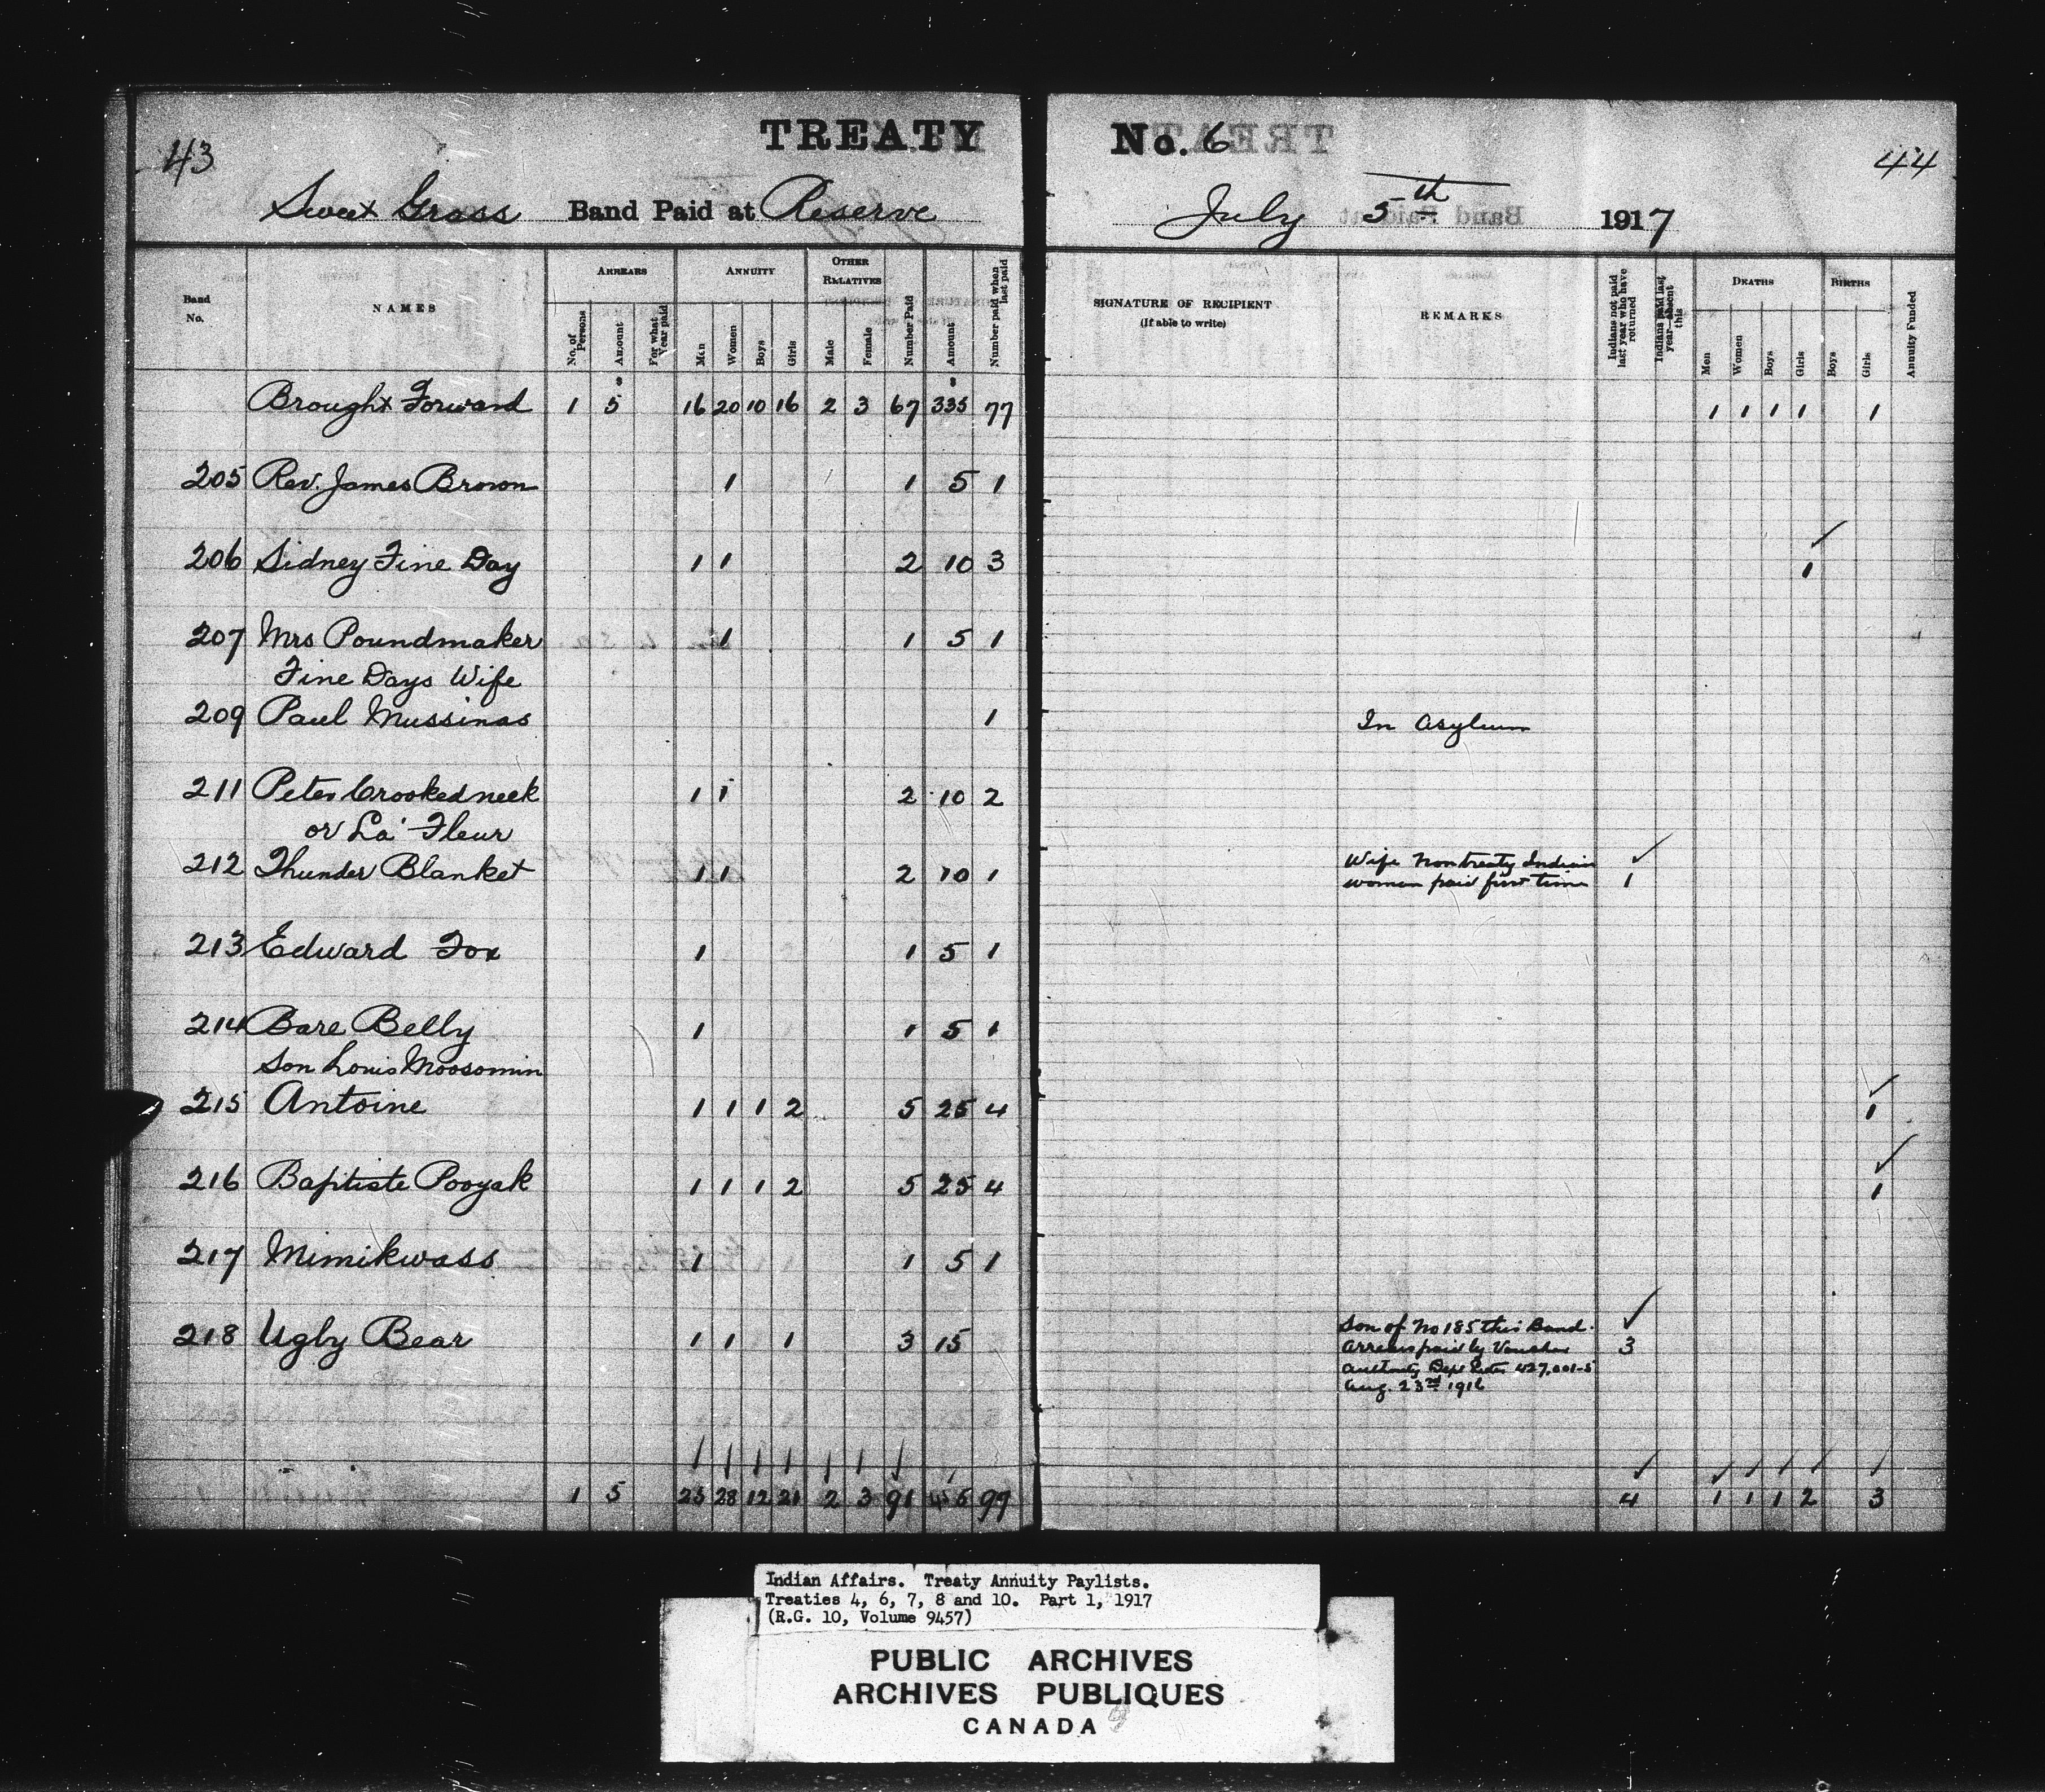 43
TREATY No. 6
44
Sweet Grass Band Paid at Reserve July 5th 1917
Band No. NAMES ARREARS ANNUITY OTHER RELATIVES Number Paid Amount Number paid when last paid SIGNATURE OF RECIPIENT (If able to write) REMARKS Indians not paid last year who have returned Indians paid last year—absent this DEATHS BIRTHS Annuity Funded
No. of Persons Amount For what Year paid Men Women Boys Girls Male Female Men Women Boys Girls Boys Girls
$ $
Brought Forward 1 5 16 20 10 16 2 3 67 335 77 1 1 1 1 1
205 Rev. James Brown 1 1 5 1
206 Sidney Fine Day 1 1 2 10 3 1
207 Mrs Poundmaker 1 1 5 1
Fine Days Wife
209 Paul Mussinas 1 In Asylum
211 Peter Crookedneck 1 1 2 10 2
or La' Fleur
212 Thunder Blanket 1 1 2 10 1 Wife Non treaty Indian
woman paid first time 1
213 Edward Fox 1 1 5 1
214 Bare Belly 1 1 5 1
Son Louis Moosomin
215 Antoine 1 1 1 2 5 25 4 1
216 Baptiste Pooyak 1 1 1 2 5 25 4 1
217 Mimikwass 1 1 5 1
218 Ugly Bear 1 1 1 3 15 Son of No 185 this Band.
Arrears paid by Voucher 3
Authority Dept Letter 427,001-5
Aug. 23rd 1916
1 5 23 28 12 21 2 3 91 455 99 4 1 1 1 2 3
Indian Affairs. Treaty Annuity Paylists.
Treaties 4, 6, 7, 8 and 10. Part 1, 1917
(R.G. 10, Volume 9457)
PUBLIC ARCHIVES
ARCHIVES PUBLIQUES
CANADA